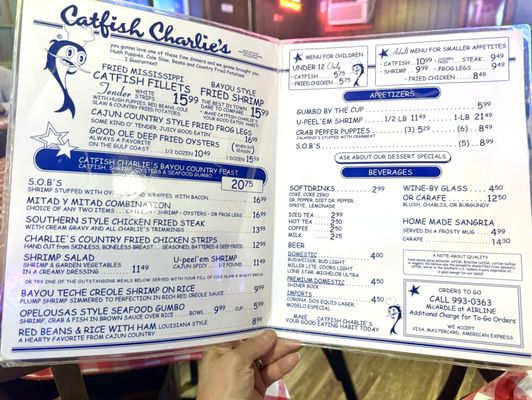 Catfish Charlie's
you gonna love one of these fine dinners and we gonna brought you
Hush Puppies, Cole Slaw, Beans and Country Fried Potatoes
I Guaranteed!
FRIED MISSISSIPPI
CATFISH FILLETS
Tender WHITE STRIPS 15.99
WITH HUSH PUPPIES, RED BEANS, COLE
SLAW & COUNTRY FRIED POTATOES.
BAYOU STYLE
FRIED SHRIMP
THE BEST IN TOWN
DARE TO COMPARE 15.99
MAKE CATFISH CHARLIE'S
YOUR EATING HABIT.
CAJUN COUNTRY STYLE FRIED FROG LEGS
SOME KIND O' TENDER, JUICY GOOD EATIN' 16.99
GOOD OLE DEEP FRIED OYSTERS
ALWAYS A FAVORITE
ON THE GULF COAST 1/2 DOZEN 10.49 1 DOZEN 15.99
(WHEN IN SEASON)
CATFISH CHARLIE'S BAYOU COUNTRY FEAST
CATFISH, SHRIMP, OYSTERS & SEAFOOD GUMBO
20.75
S.O.B'S
SHRIMP STUFFED WITH OYSTER AND WRAPPED WITH BACON 16.99
MITAD Y MITAD COMBINATION
CHOICE OF ANY TWO ITEMS • CATFISH • SHRIMP • OYSTERS • OR FROG LEGS 16.99
SOUTHERN STYLE CHICKEN FRIED STEAK
WITH CREAM GRAVY AND ALL CHARLIE'S TRIMMINGS 13.99
CHARLIE'S COUNTRY FRIED CHICKEN STRIPS
HAND CUT from SKINLESS, BONELESS BREAST...SEASONED, BATTERED & DEEP FRIED 12.99
SHRIMP SALAD
SHRIMP & GARDEN VEGETABLES
IN A CREAMY DRESSING 11.49
U-peel'em SHRIMP
CAJUN SPICY 1/2 POUND 11.49
OR TRY ONE OF THE OUTSTANDING MEALS BELOW SERVED WITH YOUR FILL OF COLE SLAW & WHEAT BREAD
BAYOU TECHE CREOLE SHRIMP ON RICE
PLUMP SHRIMP SIMMERED TO PERFECTION IN RICH RED CREOLE SAUCE 9.99
OPELOUSAS STYLE SEAFOOD GUMBO
SHRIMP, CRAB & FISH IN BROWN SAUCE OVER RICE BOWL 9.99 CUP 5.99
RED BEANS & RICE WITH HAM LOUISIANA STYLE
A HEARTY FAVORITE FROM CAJUN COUNTRY 8.99
MENU FOR CHILDREN
UNDER 12 Only
• CATFISH 5.75
• FRIED CHICKEN 5.75
Adult MENU FOR SMALLER APPETITES
• CATFISH 10.99 • STEAK 9.49
• SHRIMP 9.99 • FROG LEGS 9.49
• FRIED CHICKEN 8.49
APPETIZERS
GUMBO BY THE CUP 5.99
U-PEEL'EM SHRIMP 1/2 LB 11.49 1-LB 21.49
CRAB PEPPER PUPPIES (3) 5.29 (6) 8.49
JALAPENO'S STUFFED WITH CRABMEAT
S.O.B'S (5) 8.99
ASK ABOUT OUR DESSERT SPECIALS
BEVERAGES
SOFTDRINKS 2.99
COKE, COKE ZERO
DR. PEPPER, DIET DR. PEPPER,
SPRITE, LEMONADE
ICED TEA 2.99
HOT TEA 2.50
COFFEE 2.50
MILK 2.25
BEER
DOMESTIC 4.00
BUDWEISER, BUD LIGHT,
MILLER LITE, COORS LIGHT
LONE STAR, MICHELOB ULTRA
PREMIUM DOMESTIC 4.50
SHINER BOCK
IMPORTS 4.50
CORONA, DOS EQUIS LAGER,
MODELO ESPECIAL
MAKE CATFISH CHARLIE'S
YOUR GOOD EATING HABIT TODAY
WINE-BY GLASS 4.50
OR CARAFE 12.50
BLUSH, CHABLIS, OR BURGUNDY
HOME MADE SANGRIA
SERVED IN A FROSTY MUG 4.99
CARAFE 14.50
A NOTE ABOUT QUALITY
ORDERS TO GO
CALL 993-0363
McARDLE at AIRLINE
Additional Charge for To-Go Orders
WE ACCEPT
VISA, MASTERCARD, AMERICAN EXPRESS